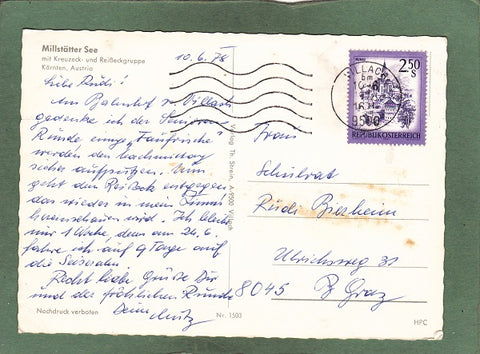 Millstätter See
mit Kreuzeck- und Reißeckgruppe
Kärnten, Austria
10.6.78
Liebe Rudi!
Am Bahnhof v. Villach
gedenke ich der Senioren
Runde einige "Taufrische"
werden den Nachmittag
sicher aufputzen. Nun
geht den Reißeck entgegen
das wieder in mein Zimmer
hereinschauen wird. Ich bleibe
nur 1 Woche, denn am 24.6.
fahre ich auf 9 Tage auf
die Seiseralm
Recht liebe Grüße Dir
und der fröhlichen Runde
Deine
Nachdruck verboten
Nr. 1503
Verlag Th. Strein, A-9500 Villach
2.50 S
REPUBLIK ÖSTERREICH
VILLACH
9500
Frau
Schulrat
Rudi Bierheim
Ulrichsweg 31
8045 Graz
HPC